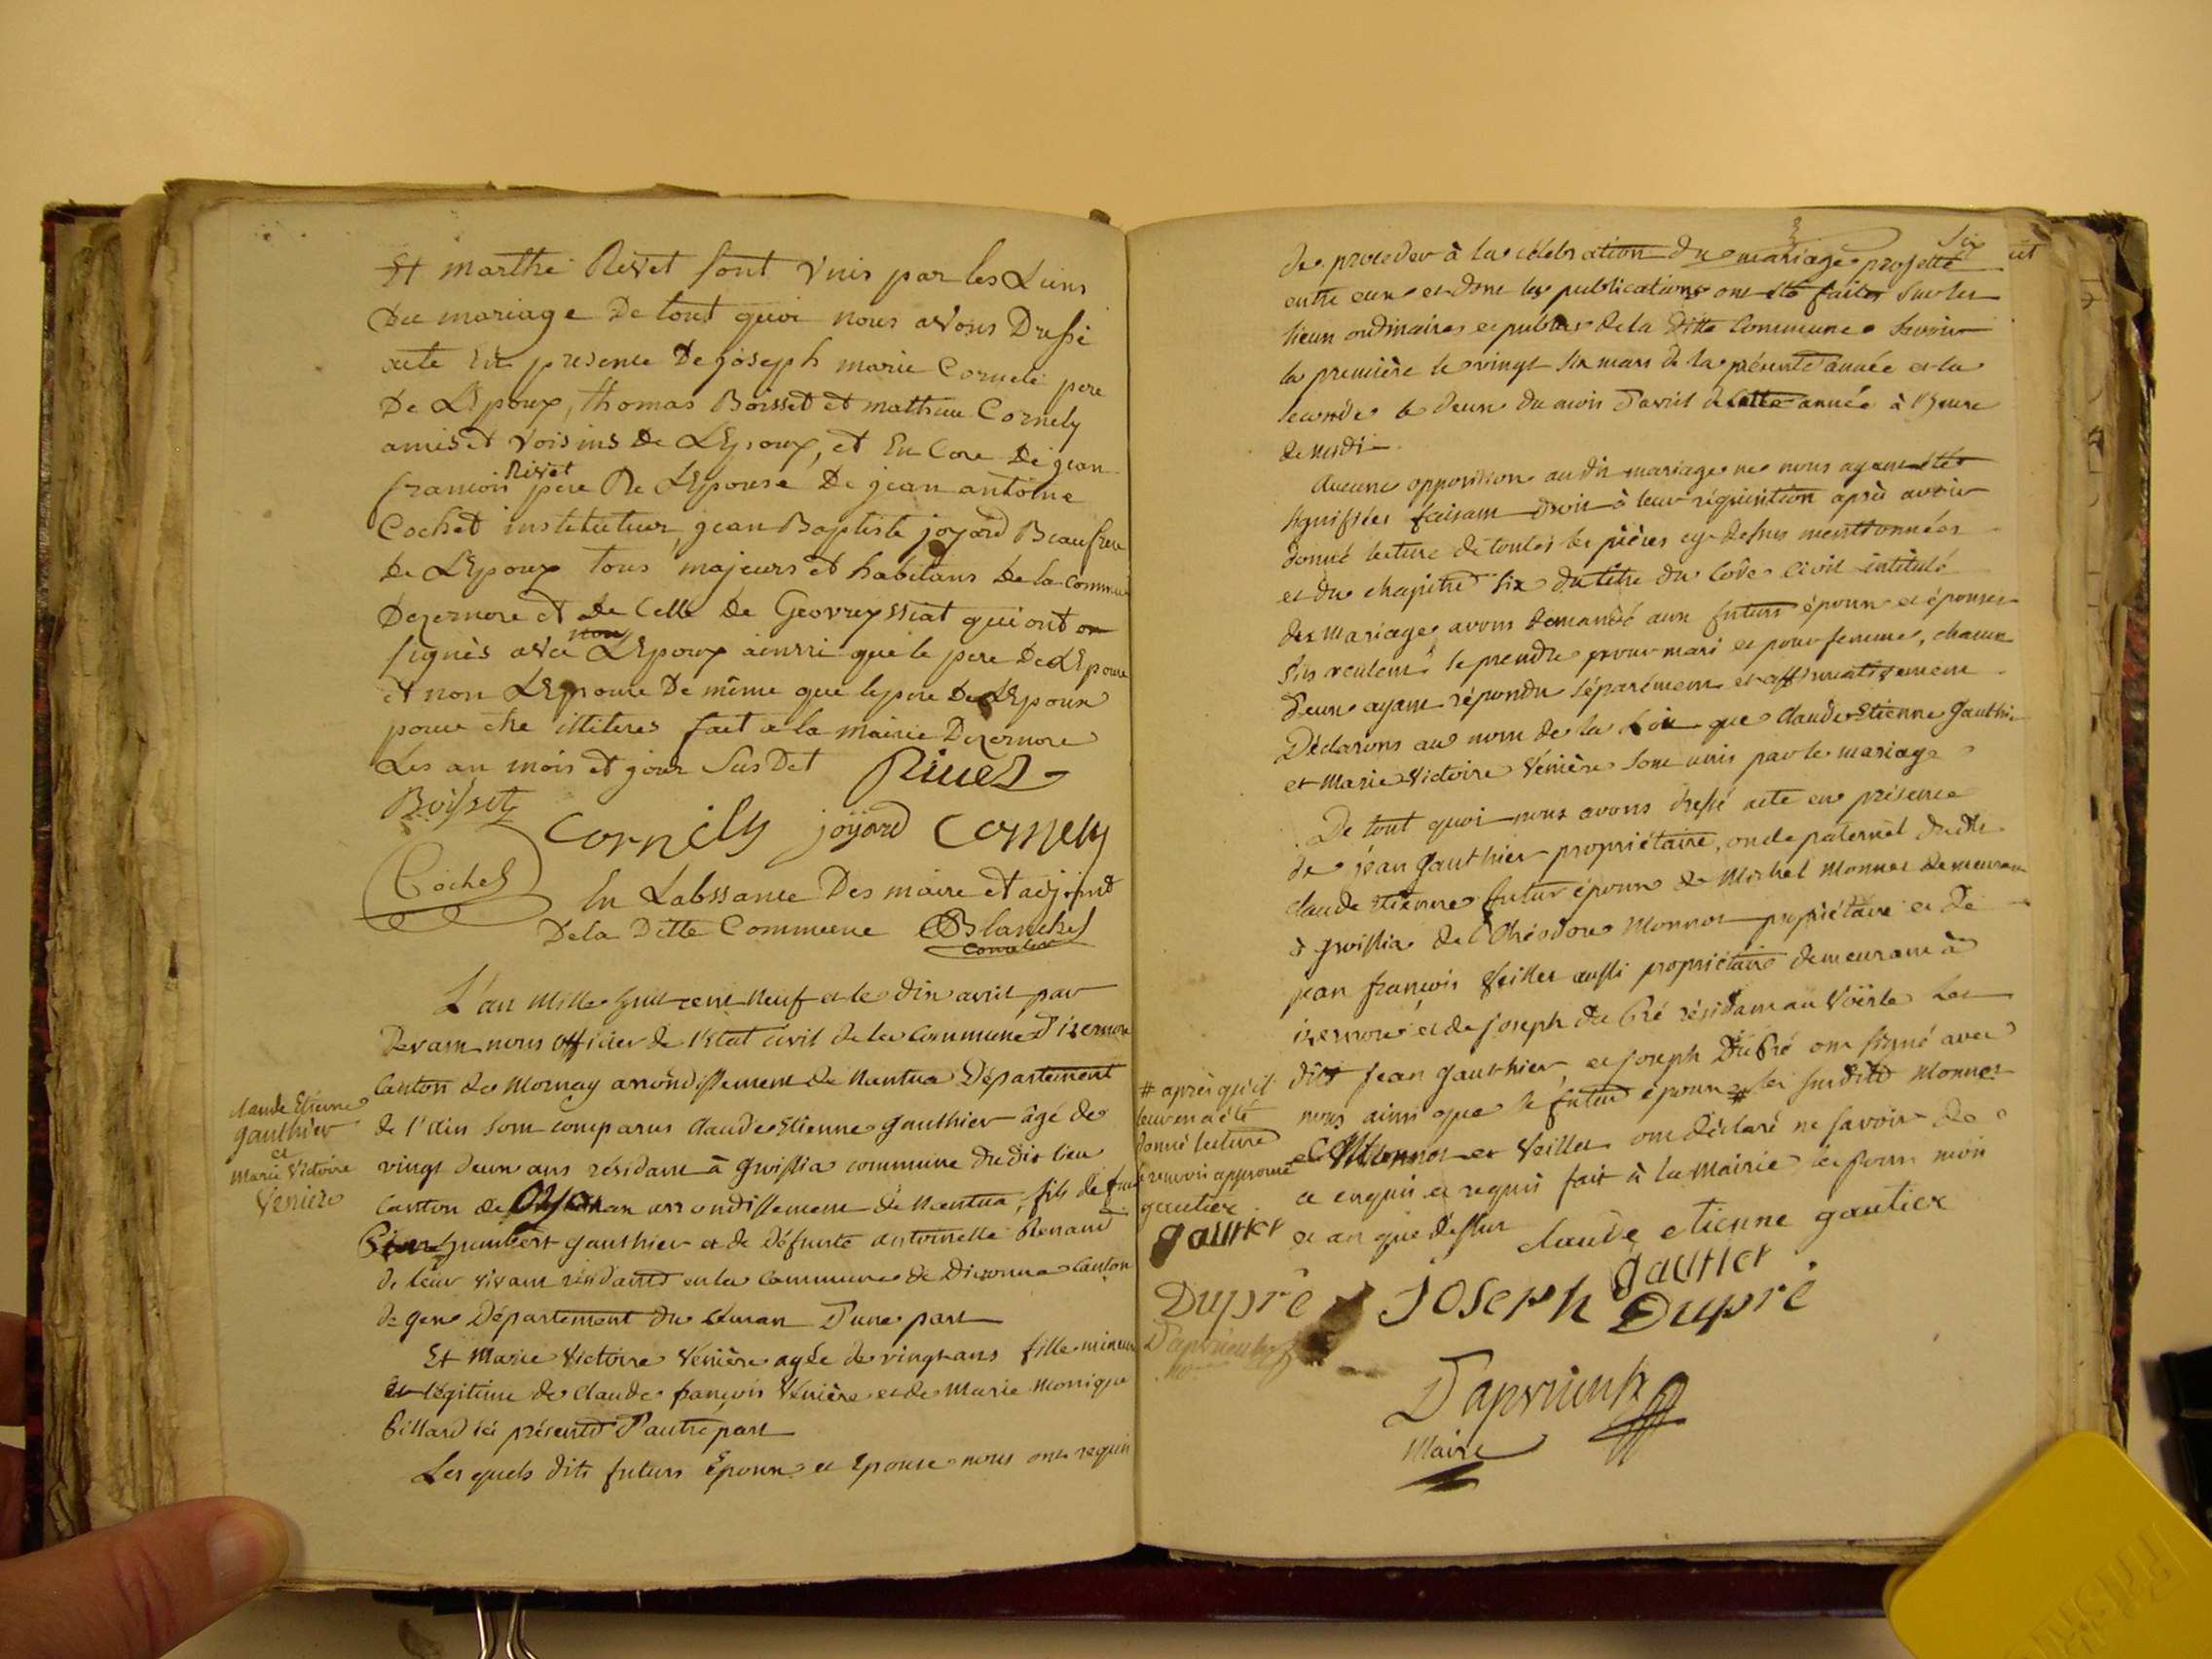 Et marthe Rivet sont Vnis par les Liens
Du mariage De tout quoi nous avons Dressé
acte En presence De joseph marie Corneli pere
De L'Epoux, thomas Boisset et mathieu Cornely
amis et Voisins De L'Epoux, et En Core De jean
francois Rivet pere De L'Epouse De jean antoine
Cochet instituteur, jean Baptiste joyard Beaufrere
De L'Epoux tous majeurs et habitans De la Commune
Dezernore et De Celle De Geovreyssiat qui ont
signés avec non L'Epoux ainsi que le pere De L'Epouse
et non L'Epouse De même que le pere De L'Epoux
pour etre illiteres fait a la mairie Dezernore
Les an mois et jour Sus Dt Rivet
Boisset
Cornely joyard Cornely
Cochet
En Labssance Des maire et adjoint
De la Ditte Commune Blanchet
Conseiller
L'an Mille huit cent Neuf et le dix avril par
Devant nous Officier de l'Etat civil de la Commune d'izernore
Canton de Mornay arrondissement de Nantua Département
de l'ain sont comparus Claude Etienne Gauthier âgé de
vingt deux ans résidant à Groissia commune du dit lieu
Canton de Oyonnax arrondissement de Nantua, fils de feu
humbert Gauthier et de défunte antoinette Renaud
de leur vivant résidants en la Commune de Divonne Canton
de gex Département du Leman D'une part
Et Marie Victoire Vénière agée de vingt ans fille mineure
et légitime de Claude françois Vénière et de Marie Monique
Billard ici présents D'autre part
Les quels dits futurs Epoux et Epouse nous ont requis
Claude Etienne
Gauthier
et
Marie Victoire
Veniere
Six
de proceder à la célébration du mariage projetté
entre eux et dont les publications ont été faites sur les
lieux ordinaires et publics de la Ditte Commune Savoir
la première le vingt six mars de la présente année et la
seconde le deux du mois D'avril de cette année à l'heure
de midi
Aucune opposition au dit mariage ne nous ayant été
signifiée faisant droit à leur réquisition après avoir
donné lecture de toutes les pièces cy dessus mentionnées
et du chapitre Six du titre du Code Civil intitulé
des Mariages avons demandé aux futurs époux et épouse
s'ils veulent se prendre pour mari et pour femme, chacun
d'eux ayant répondu séparément et affirmativement
Déclarons au nom de la Loi que Claude Etienne Gauthier
et Marie Victoire Vénière sont unis par le mariage
De tout quoi nous avons dressé acte en présence
de jean Gauthier propriétaire, oncle paternel dudit
Claude Etienne futur époux de Michel Monnet demeurant
à Groissia de Théodore Monnot propriétaire et de
jean françois Veillet aussi propriétaire demeurant à
izernore et de joseph du Pré résidant au Voërle Les
dits jean Gauthier et joseph DuPré ont signé avec
nous ainsi que le futur époux # les susdits Monnet
Monnot et Veillet ont déclaré ne savoir de
ce enquis et requis fait à la Mairie les jour mois
et an que dessus claude etienne gautier
gautier
joseph Dupré
# après qu'il
leur en a été
donné lecture
renvoi approuvé
gautier
gautier
Dupré
Maire